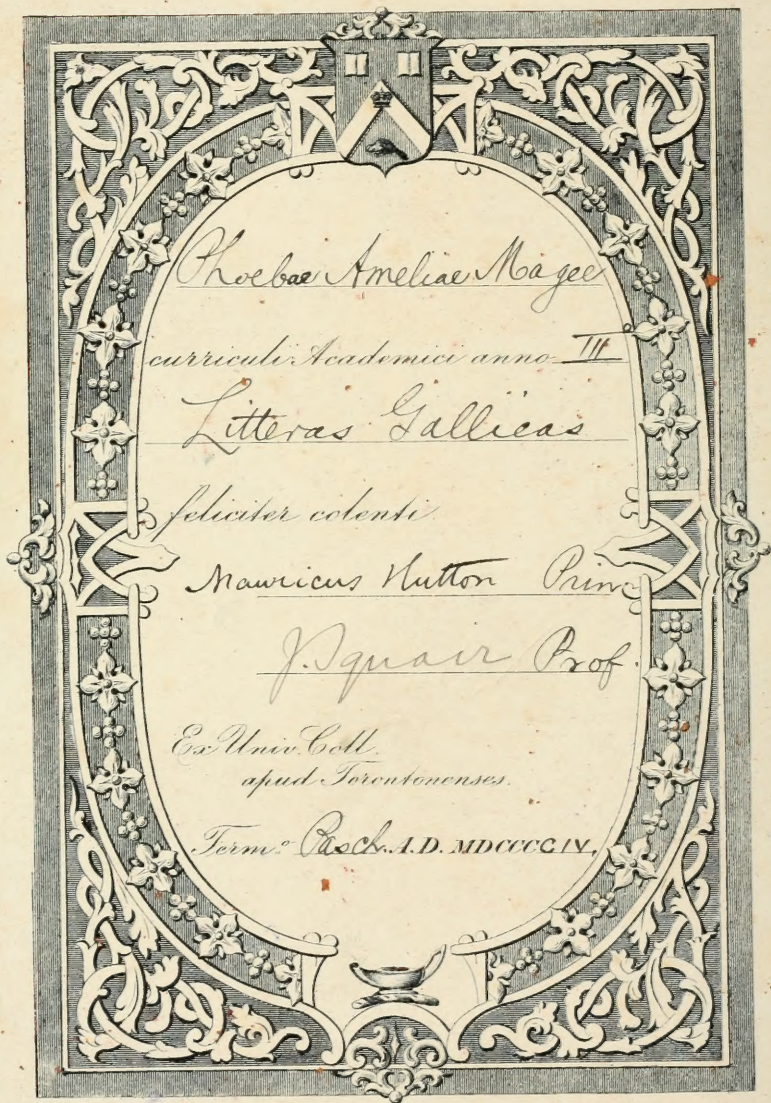 Phoebae Ameliae Magee
curriculi Academici anno III
Litteras Gallicas
feliciter colenti
Mauricus Hutton Prin.
J. Squair Prof.
Ex Univ. Coll.
apud Torontonenses.
Term.º Pasch. A.D. MDCCCCIV.